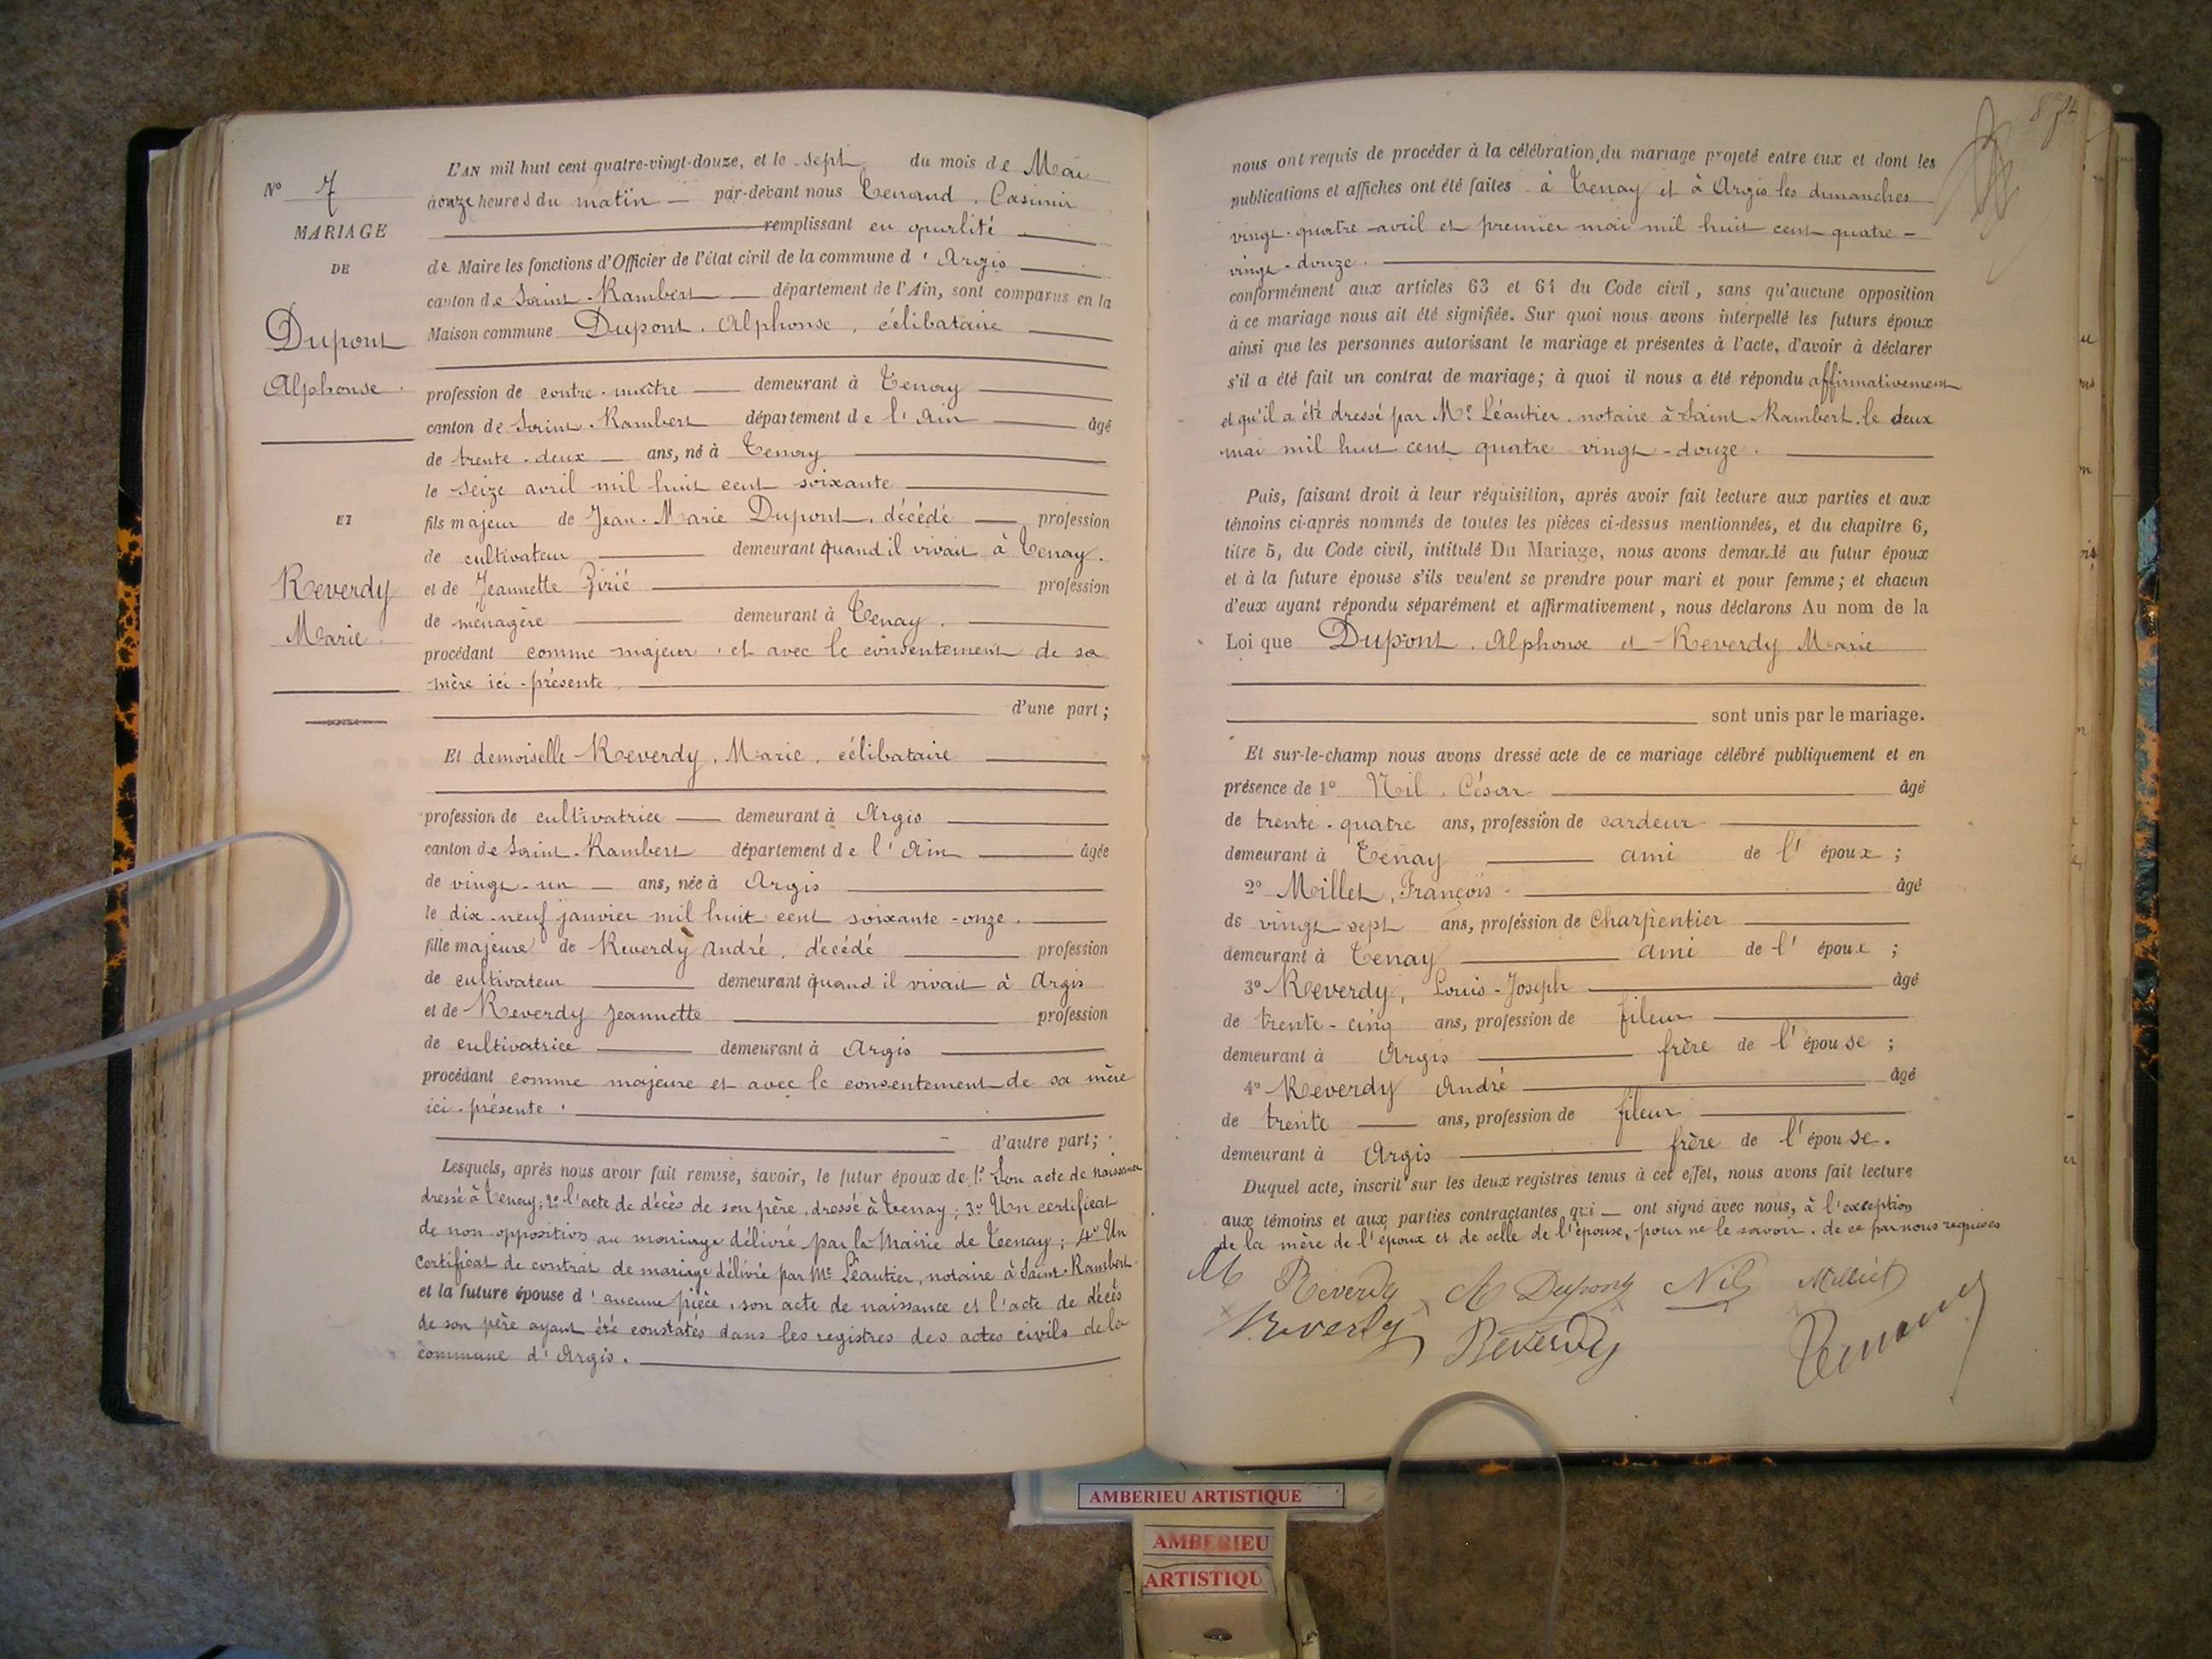 N° 7
MARIAGE
DE
Dupont
Alphonse.
ET
Reverdy
Marie.
L'AN mil huit cent quatre-vingt-douze, et le sept du mois de Mai
à onze heures du matin — par-devant nous Tenand, Casimir
remplissant en qualité
de Maire les fonctions d'Officier de l'état civil de la commune d'Argis
canton de Saint-Rambert — département de l'Ain, sont comparus en la
Maison commune Dupont, Alphonse, célibataire
profession de contre-maître — demeurant à Tenay
canton de Saint-Rambert département de l'Ain — âgé
de trente-deux — ans, né à Tenay
le seize avril mil huit cent soixante
fils majeur de Jean-Marie Dupont, décédé — profession
de cultivateur — demeurant quand il vivait à Tenay.
et de Jeannette — profession
de ménagère — demeurant à Tenay.
procédant comme majeur, et avec le consentement de sa
mère ici-présente.
d'une part;
Et demoiselle Reverdy, Marie, célibataire
profession de cultivatrice — demeurant à Argis
canton de Saint-Rambert département de l'Ain — âgée
de vingt-un — ans, née à Argis
le dix-neuf janvier mil huit cent soixante-onze.
fille majeure de Reverdy André, décédé — profession
de cultivateur — demeurant quand il vivait à Argis
et de Reverdy Jeannette — profession
de cultivatrice — demeurant à Argis
procédant comme majeure et avec le consentement de sa mère
ici-présente.
d'autre part;
Lesquels, après nous avoir fait remise, savoir, le futur époux de 1° Son acte de naissance
dressé à Tenay; 2° l'acte de décès de son père, dressé à Tenay; 3° Un certificat
de non opposition au mariage délivré par la Mairie de Tenay; 4° Un
certificat de contrat de mariage délivré par Me Léautier, notaire à Saint-Rambert
et la future épouse d'aucune pièce, son acte de naissance et l'acte de décès
de son père ayant été constatés dans les registres des actes civils de la
commune d'Argis.
nous ont requis de procéder à la célébration du mariage projeté entre eux et dont les
publications et affiches ont été faites à Tenay et à Argis les dimanches
vingt-quatre avril et premier mai mil huit cent quatre-
vingt-douze.
conformément aux articles 63 et 64 du Code civil, sans qu'aucune opposition
à ce mariage nous ait été signifiée. Sur quoi nous avons interpellé les futurs époux
ainsi que les personnes autorisant le mariage et présentes à l'acte, d'avoir à déclarer
s'il a été fait un contrat de mariage; à quoi il nous a été répondu affirmativement
et qu'il a été dressé par Me Léautier, notaire à Saint-Rambert, le deux
mai mil huit cent quatre vingt-douze.
Puis, faisant droit à leur réquisition, après avoir fait lecture aux parties et aux
témoins ci-après nommés de toutes les pièces ci-dessus mentionnées, et du chapitre 6,
titre 5, du Code civil, intitulé Du Mariage, nous avons demandé au futur époux
et à la future épouse s'ils veulent se prendre pour mari et pour femme; et chacun
d'eux ayant répondu séparément et affirmativement, nous déclarons Au nom de la
Loi que Dupont, Alphonse et Reverdy Marie
sont unis par le mariage.
Et sur-le-champ nous avons dressé acte de ce mariage célébré publiquement et en
présence de 1° Nil, César — âgé
de trente-quatre ans, profession de cardeur
demeurant à Tenay — ami de l'époux;
2° Millet, François — âgé
de vingt sept ans, profession de Charpentier
demeurant à Tenay — ami de l'époux;
3° Reverdy, Louis-Joseph — âgé
de trente-cinq ans, profession de fileur
demeurant à Argis — frère de l'épouse;
4° Reverdy André — âgé
de trente — ans, profession de fileur
demeurant à Argis — frère de l'épouse.
Duquel acte, inscrit sur les deux registres tenus à cet effet, nous avons fait lecture
aux témoins et aux parties contractantes qui — ont signé avec nous, à l'exception
de la mère de l'époux et de celle de l'épouse, pour ne le savoir, de ce par nous requises
M Reverdy A Dupont Nil Milliet
Reverdy Reverdy Tenand
AMBERIEU ARTISTIQUE
AMBERIEU
ARTISTIQU